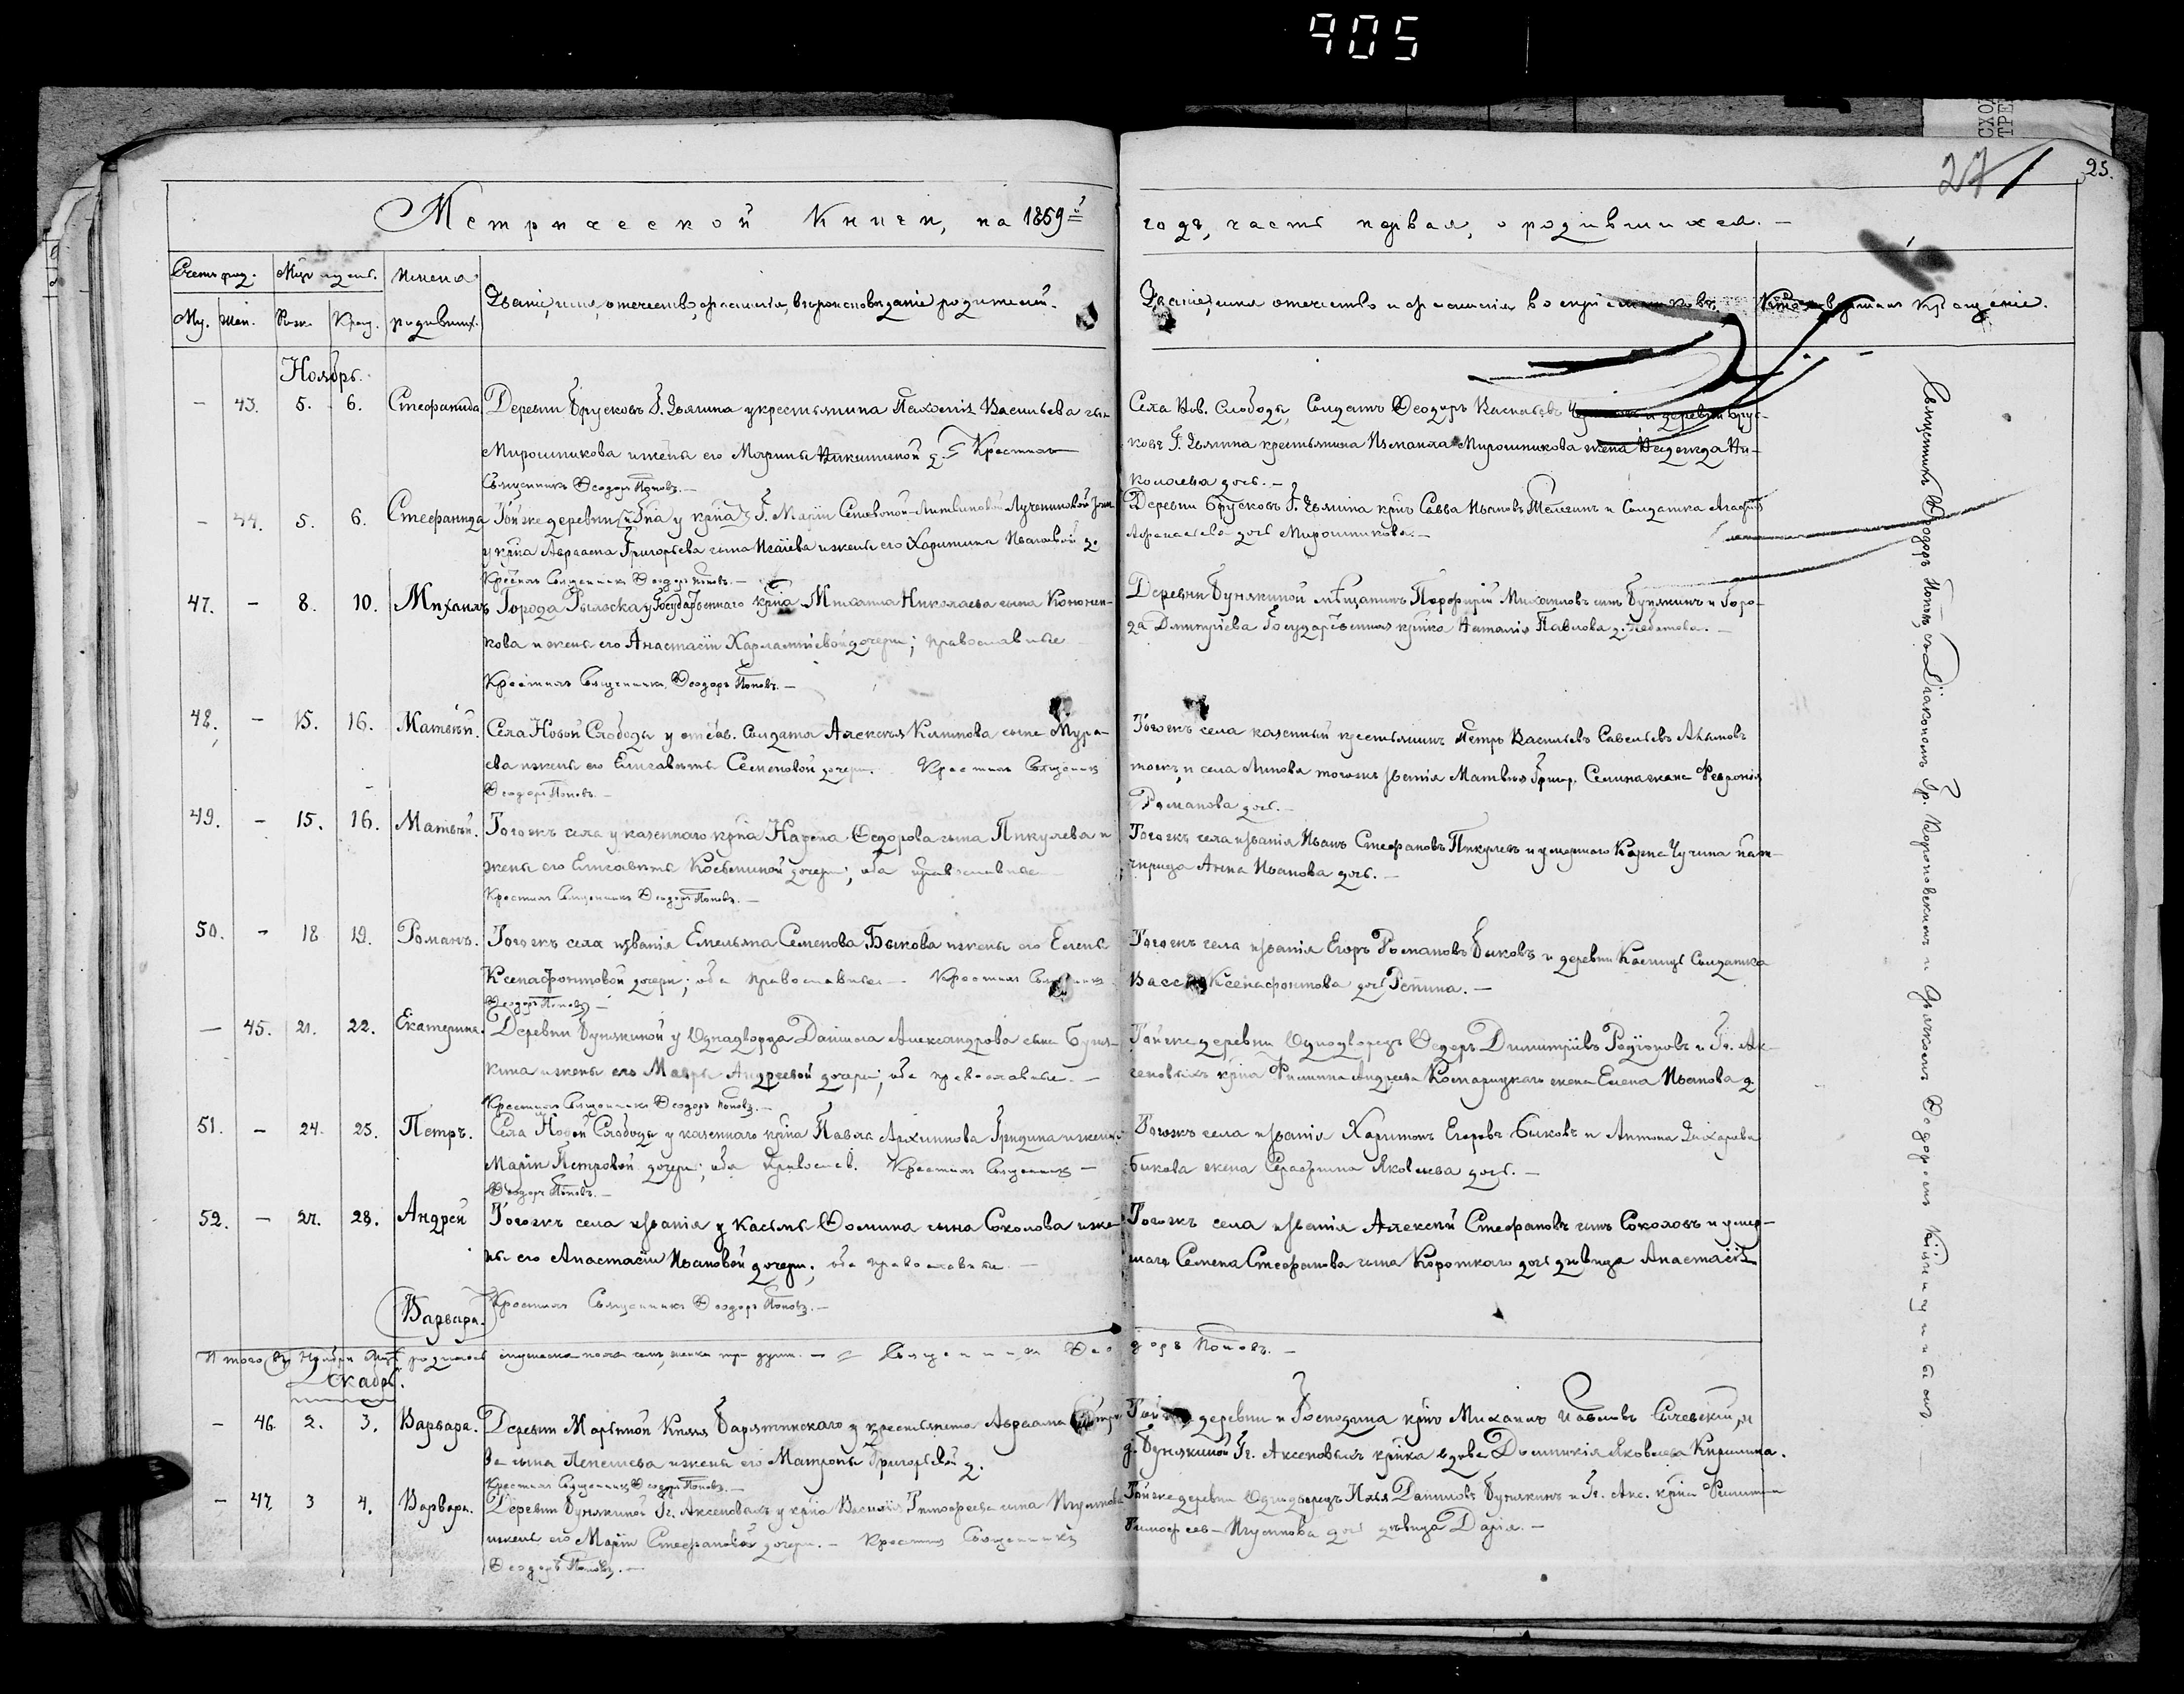 905
СХО
ТРЕ
271
25.
Метрической Книги, на 1859й
годъ, часть первая, о родившихся. —
Счетъ род.
Му. Жен.
Рожд. Крещ.
Имена
родивших.
Званіе, имя, отечество, фамилія, вѣроисповѣданіе родителей.
Званіе, имя отечество и фамилія воспріемниковъ.
Кто совершалъ крещеніе.
Ноябрь.
— 43. 5. 6. Стефанида
Деревни Брусковъ Г. крестьянина Васильева сына
Мирошникова и жены его Марины Никитиной д. Крестилъ
Священникъ Ѳеодоръ Поповъ. —
Села Нов. Слободы, Солдатъ Ѳеодоръ Васильевъ и деревни Брус-
ковъ Г. крестьянина Измаила Мирошникова жена Надежда Ни-
колаева дочь. —
— 44. 5. 6. Стефанида
Той же деревни у крна Г. Маріи
у крна Авраама Григорьева сына Исаіева и жены его Харитины Ивановой д.
Крестилъ Священникъ Ѳеодоръ Поповъ. —
Деревни Брусковъ Г. крнъ Савва Ивановъ и Солдатка Агафія
дочь Мирошникова. —
47. — 8. 10. Михаилъ
Города Рыльска у Государственнаго крна Михаила Николаева сына Кононен-
кова и жены его Анастасіи Харлампіевой дочери; православные
Крестилъ Священникъ Ѳеодоръ Поповъ. —
Деревни Бунякиной мѣщанинъ Порфирій Михаиловъ сынъ Бунякинъ и Горо-
да Дмитріева Государственная крнка Наталія Павлова д. —
48. — 15. 16. Матвѣй.
Села Новой Слободы у отстав. Солдата Алексѣя Климова сына Мура-
ева и жены его Елисаветы Семеновой дочери. Крестилъ Священникъ
Ѳеодоръ Поповъ. —
Тогожъ села казенный крестьянинъ Петръ Васильевъ Савельевъ
и села Линова тогожъ званія Матвѣя Григор. жена Февронія
Романова доч. —
49. — 15. 16. Матвѣй.
Тогожъ села у казеннаго крна Карпа Ѳедорова сына Пикулева и
жены его Елисаветы Косьминой дочери; оба православные
Крестилъ Священникъ Ѳеодоръ Поповъ. —
Тогожъ села и званія Иванъ Стефановъ Пикулевъ и умершаго Карпа Чучина пад-
чирица Анна Иванова доч. —
50. — 18 19. Романъ.
Тогожъ села и званія Емельяна Семенова Быкова и жены его Елены
Ксенофонтовой дочери; оба православные — Крестилъ Священникъ
Ѳеодоръ Поповъ —
Тогожъ села и званія Егоръ Романовъ Быковъ и деревни Солдатка
Васса Ксенафонтова доч. Репина. —
— 45. 21. 22. Екатерина.
Деревни Бунякиной у Однадворца Даніила Александрова сына Буня-
кина и жены его Мавры Андреевой дочери; оба православные. —
Крестилъ Священникъ Ѳеодоръ Поповъ. —
Той же деревни Однодворецъ Ѳедоръ Димитріевъ Родіоновъ и Гг. Ак-
сеновыхъ крна Филиппа Андреева Комарицкаго жена Елена Иванова д.
51. — 24. 25. Петръ.
Села Новой Слободы у казеннаго крна Павла Архиппова Гридина и жены
Маріи Петровой дочери; оба православ. Крестилъ Священникъ —
Ѳеодоръ Поповъ. —
Тогожъ села и званія Харитонъ Егоровъ Быковъ и Антона Захарьева
Быкова жена Серафима Яковлева доч. —
52. — 27. 28. Андрей
Тогожъ села и званія у Касьмы Ѳомина сына Соколова и же-
ны его Анастасіи Ивановой дочери; оба православные. —
Крестилъ Священникъ Ѳеодоръ Поповъ. —
Тогожъ села и званія Алексѣй Стефановъ сынъ Соколовъ и умер-
шаго Семена Стефанова сына Короткаго дочь дѣвица Анастасія
Варвара.
Итого въ Ноябрѣ родилось мужеска пола семь, женска три души. — Священникъ Ѳеодоръ Поповъ. —
Декабрь.
— 46. 2. 3. Варвара.
Деревни Марьиной Князя Барятинскаго у крестьянина Авраама Петро-
ва сына Лепешева и жены его Матроны Григорьевой д.
Крестилъ Священникъ Ѳеодоръ Поповъ. —
Той же деревни и Господина крнъ Михаилъ Сычевскій, и
д. Бунякиной Гг. Аксеновыхъ крнка вдова Домникія Яковлева Кирилина.
— 47. 3 4. Варвара.
Деревни Бунякиной Гг. Аксеновыхъ у крна Василія Тимофеева сына Игумнова
и жены его Маріи Стефановой дочери. — Крестилъ Священникъ
Ѳеодоръ Поповъ. —
Той же деревни Однодворецъ Илья Даниловъ Бунякинъ и Гг. Акс. крна Филиппа
Тимофеева Игумнова дочь дѣвица Дарія. —
Священникъ Ѳеодоръ Поповъ съ Діакономъ Гр. Вороновскимъ и Дьячкомъ Ѳеодоромъ